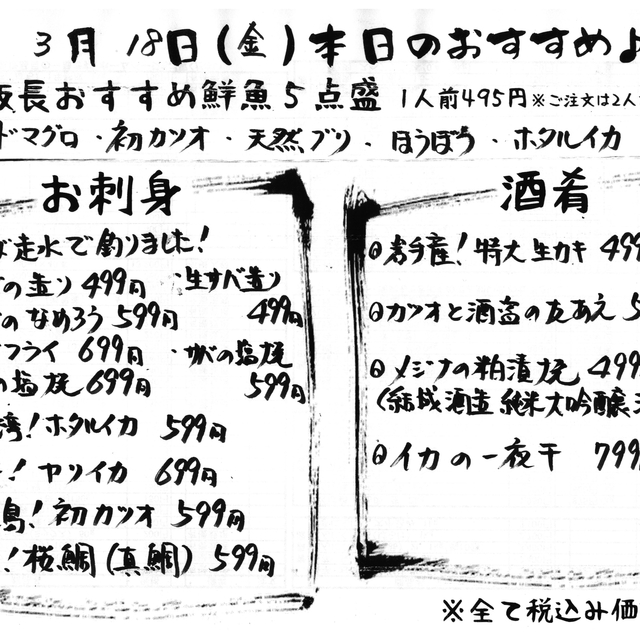 3月18日(金)本日のおすすめ
板長おすすめ鮮魚5点盛 1人前495円※ご注文は2人
ドマグロ・初カツオ・天然ブリ・ほうぼう・ホタルイカ
お刺身
走水で釣りました!
の造り 499円 ・生サバ造り 499円
のなめろう 599円
フライ 699円 ・サバの塩焼 599円
の塩焼 699円
湾!ホタルイカ 599円
!ヤリイカ 699円
島!初カツオ 599円
!桜鯛(真鯛) 599円
酒肴
岩手産!特大生カキ 499
カツオと酒盗の あえ 5
メジナの粕漬焼 499
(結城酒造 純米大吟醸
イカの一夜干 799
※全て税込み価